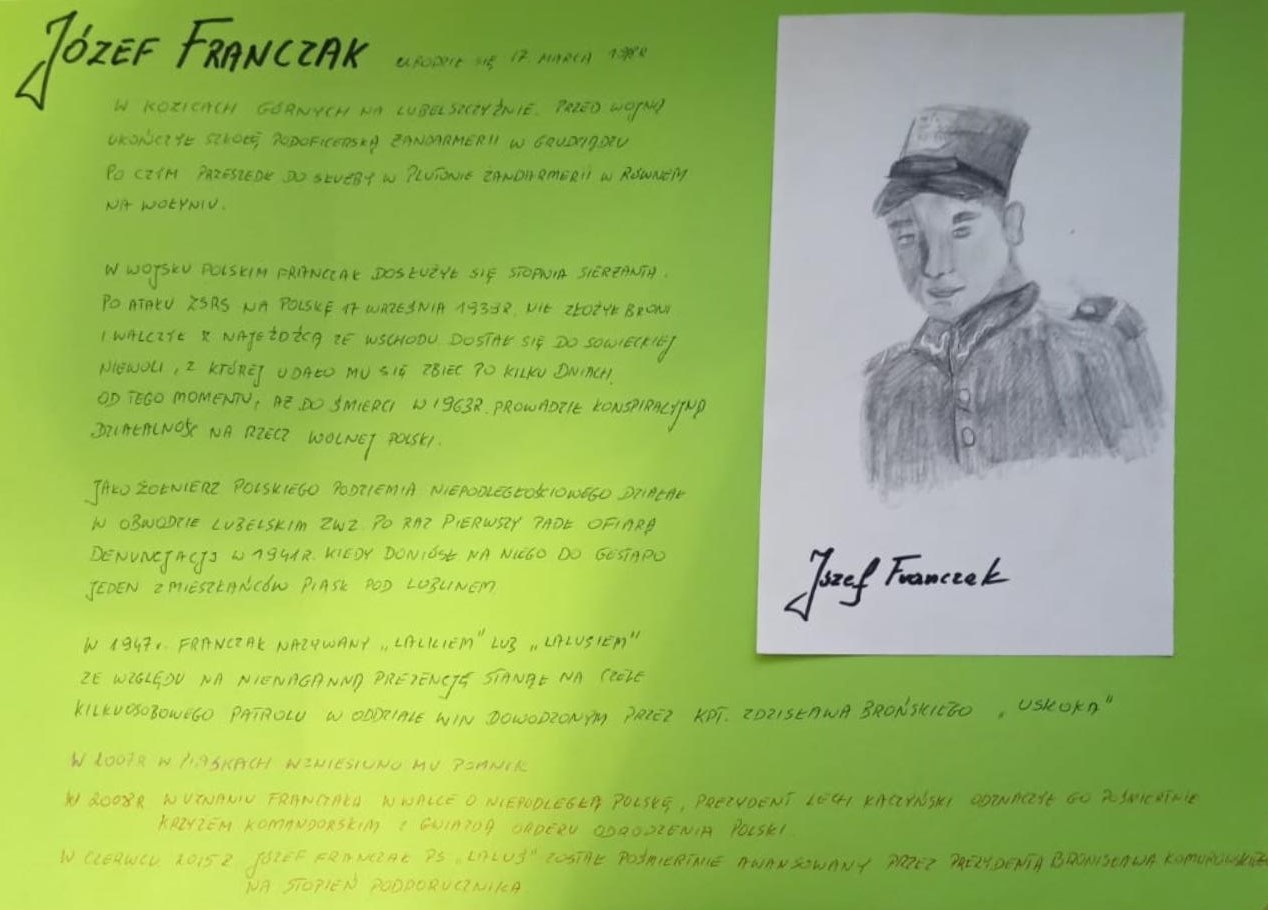 JÓZEF FRANCZAK URODZIŁ SIĘ 17 MARCA
W KOZICACH GÓRNYCH NA LUBELSZCZYŹNIE. PRZED WOJNĄ
UKOŃCZYŁ SZKOŁĘ PODOFICERSKĄ ŻANDARMERII W GRUDZIĄDZU
PO CZYM PRZESZEDŁ DO SŁUŻBY W PLUTONIE ŻANDARMERII W RÓWNEM
NA WOŁYNIU.
W WOJSKU POLSKIM FRANCZAK DOSŁUŻYŁ SIĘ STOPNIA SIERŻANTA.
PO ATAKU ZSRS NA POLSKĘ 17 WRZEŚNIA 1939R. NIE ZŁOŻYŁ BRONI
I WALCZYŁ Z NAJEŹDŹCĄ ZE WSCHODU. DOSTAŁ SIĘ DO SOWIECKIEJ
NIEWOLI, Z KTÓREJ UDAŁO MU SIĘ ZBIEC PO KILKU DNIACH.
OD TEGO MOMENTU, AŻ DO ŚMIERCI W 1963R. PROWADZIŁ KONSPIRACYJNĄ
DZIAŁALNOŚĆ NA RZECZ WOLNEJ POLSKI.
JAKO ŻOŁNIERZ POLSKIEGO PODZIEMIA NIEPODLEGŁOŚCIOWEGO DZIAŁAŁ
W OBWODZIE LUBELSKIM ZWZ PO RAZ PIERWSZY PADŁ OFIARĄ
DENUNCJACJI W 1941R. KIEDY DONIÓSŁ NA NIEGO DO GESTAPO
JEDEN Z MIESZKAŃCÓW PIASK POD LUBLINEM
W 1947r. FRANCZAK NAZYWANY „LALKIEM" LUB „LALUSIEM"
ZE WZGLĘDU NA NIENAGANNĄ PREZENCJĘ STANĄŁ NA CZELE
KILKUOSOBOWEGO PATROLU W ODDZIALE WIN DOWODZONYM PRZEZ KPT. ZDZISŁAWA BROŃSKIEGO „USKOKA"
W 2007R W PIASKACH WZNIESIONO MU POMNIK
W 2008R W UZNANIU FRANCZAKA W WALCE O NIEPODLEGŁĄ POLSKĘ, PREZYDENT LECH KACZYŃSKI ODZNACZYŁ GO POŚMIERTNIE
KRZYŻEM KOMANDORSKIM Z GWIAZDĄ ORDERU ODRODZENIA POLSKI.
W CZERWCU 2015R JÓZEF FRANCZAK PS. „LALUŚ" ZOSTAŁ POŚMIERTNIE AWANSOWANY PRZEZ PREZYDENTA BRONISŁAWA KOMOROWSKIEGO
NA STOPIEŃ PODPORUCZNIKA
Józef Franczak